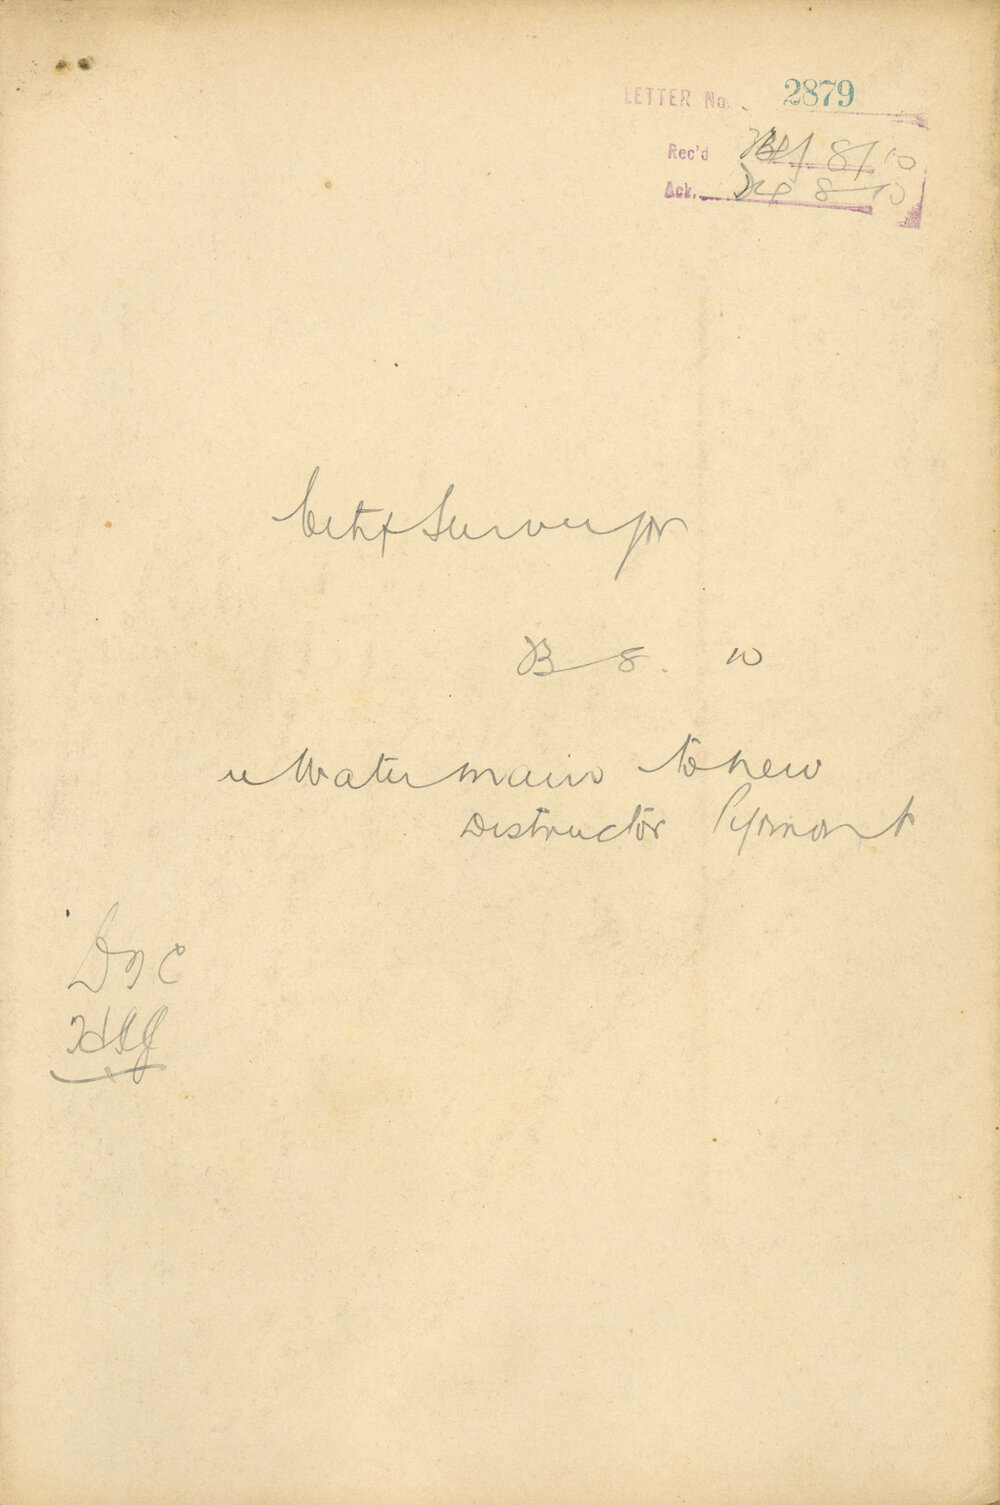 LETTER No. 2879
Rec'd 8/10
Ack. 8 10
City Surveyor
8. 10
re Water main to new
Destructor Pyrmont